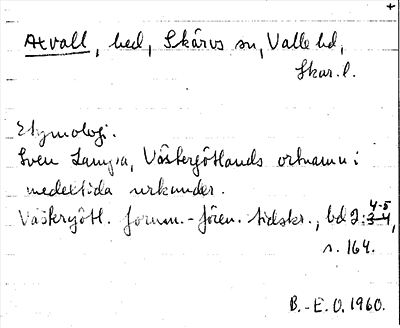 Axvall, hed, Skärvs sn, Valle hd,
Skar. l.
Etymologi.
Sven Lampa, Västergötlands ortnamn i
medeltida urkunder.
Västergötl. fornm.-fören. tidskr., bd 2:3-4 4-5,
s. 164.
B.-E. O. 1960.